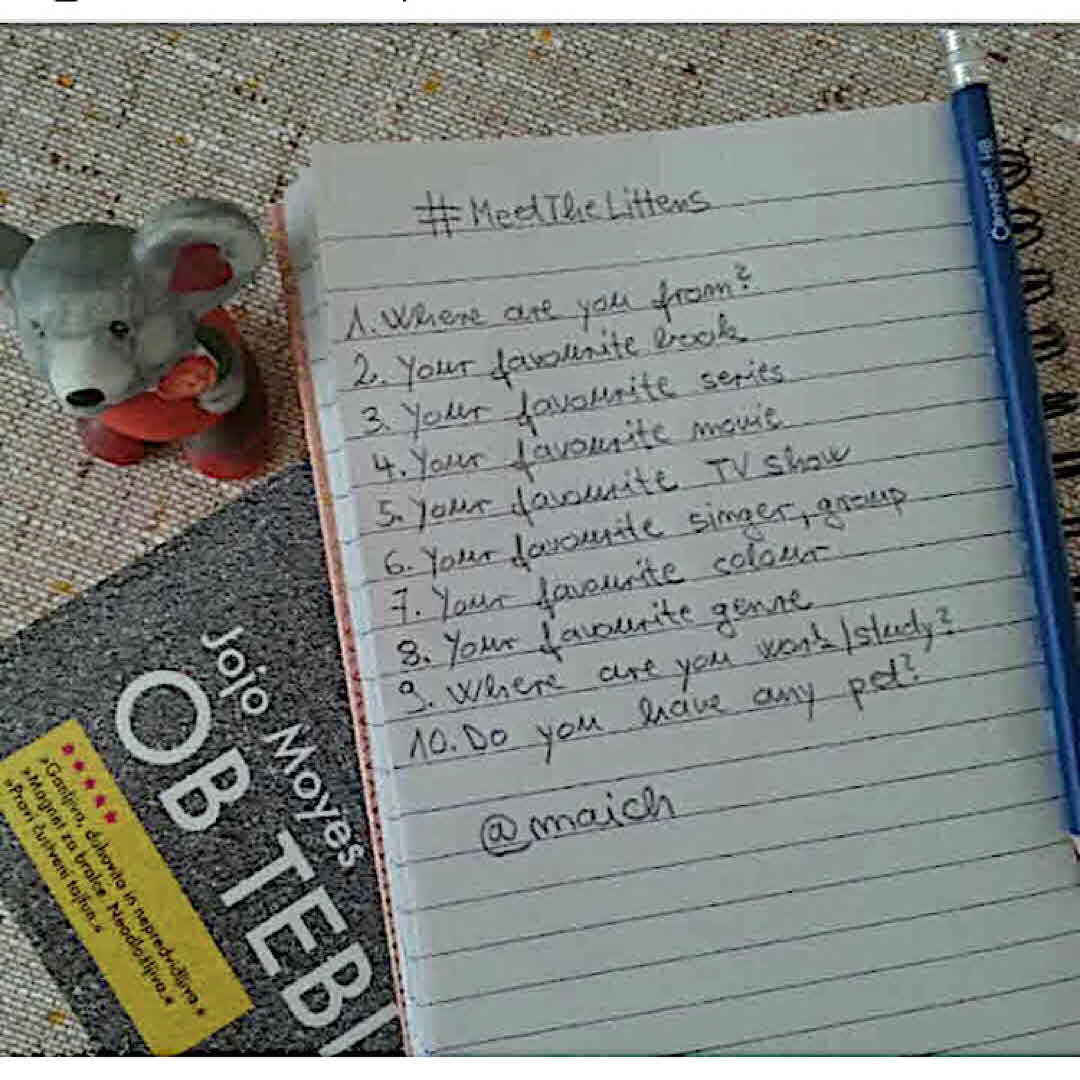 #MeetTheLittens
1. Where are you from?
2. Your favourite book
3. Your favourite series
4. Your favourite movie
5. Your favourite TV show
6. Your favourite singer, group
7. Your favourite colour
8. Your favourite genre
9. Where are you work/study?
10. Do you have any pet?
@maich
Jojo Moyes
OB TEBI
»Ganljiva, duhovita in nepredvidljiva.«
»Magnet za bralce. Neodložljiva.«
»Pravi čustveni tajfun.«